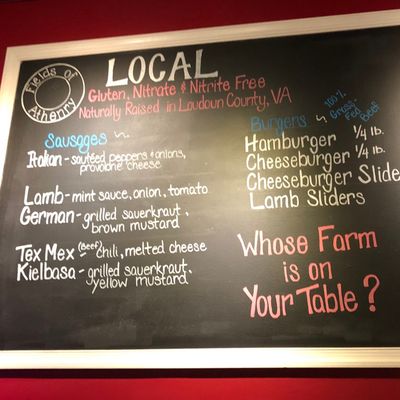 Fields of
Athenry
LOCAL
Gluten, Nitrate & Nitrite Free
Naturally Raised in Loudoun County, VA
Sausages ~
Italian - sautéed peppers & onions,
provolone cheese
Lamb - mint sauce, onion, tomato
German - grilled sauerkraut,
brown mustard
Tex Mex - (Beef) chili, melted cheese
Kielbasa - grilled sauerkraut,
yellow mustard
Burgers ~ 100% Grass-Fed Beef
Hamburger 1/4 lb.
Cheeseburger 1/4 lb.
Cheeseburger Slide
Lamb Sliders
Whose Farm
is on
Your Table?